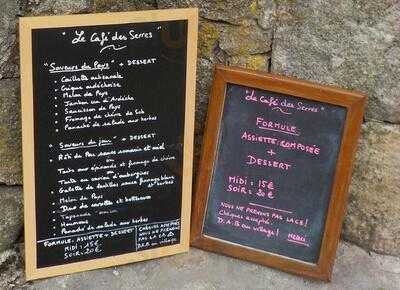 " Le Café des Serres "
" Saveurs du Pays " + DESSERT
- Caillette artisanale
- Crique ardéchoise
- Melon de Pays
- Jambon cru d'Ardèche
- Saucisson de Pays
- Fromage de chèvre de
- Panaché de salade aux herbes
" Saveurs du jour " + DESSERT
- Rôti de Porc sauce romarin et miel
ou
- Tarte aux épinards et fromage de chèvre
ou
- Tarte au caviar d'aubergines
- Galette de lentilles sauce fromage blanc
et herbes
- Melon de Pays
- Duo de carottes et betteraves
- Tapenade
- Houmous
- Panaché de salade aux herbes
FORMULE: ASSIETTE + DESSERT
MIDI: 15€
SOIR: 20€
CHÈQUES ACCEPTÉS
NOUS NE PRENONS
PAS LA CB
D.A.B au village!
" Le Café des Serres "
FORMULE
ASSIETTE COMPOSÉE
+
DESSERT
MIDI: 15€
SOIR: 20€
NOUS NE PRENONS PAS LA CB!
Chèques acceptés.
D.A.B au village! MERCI